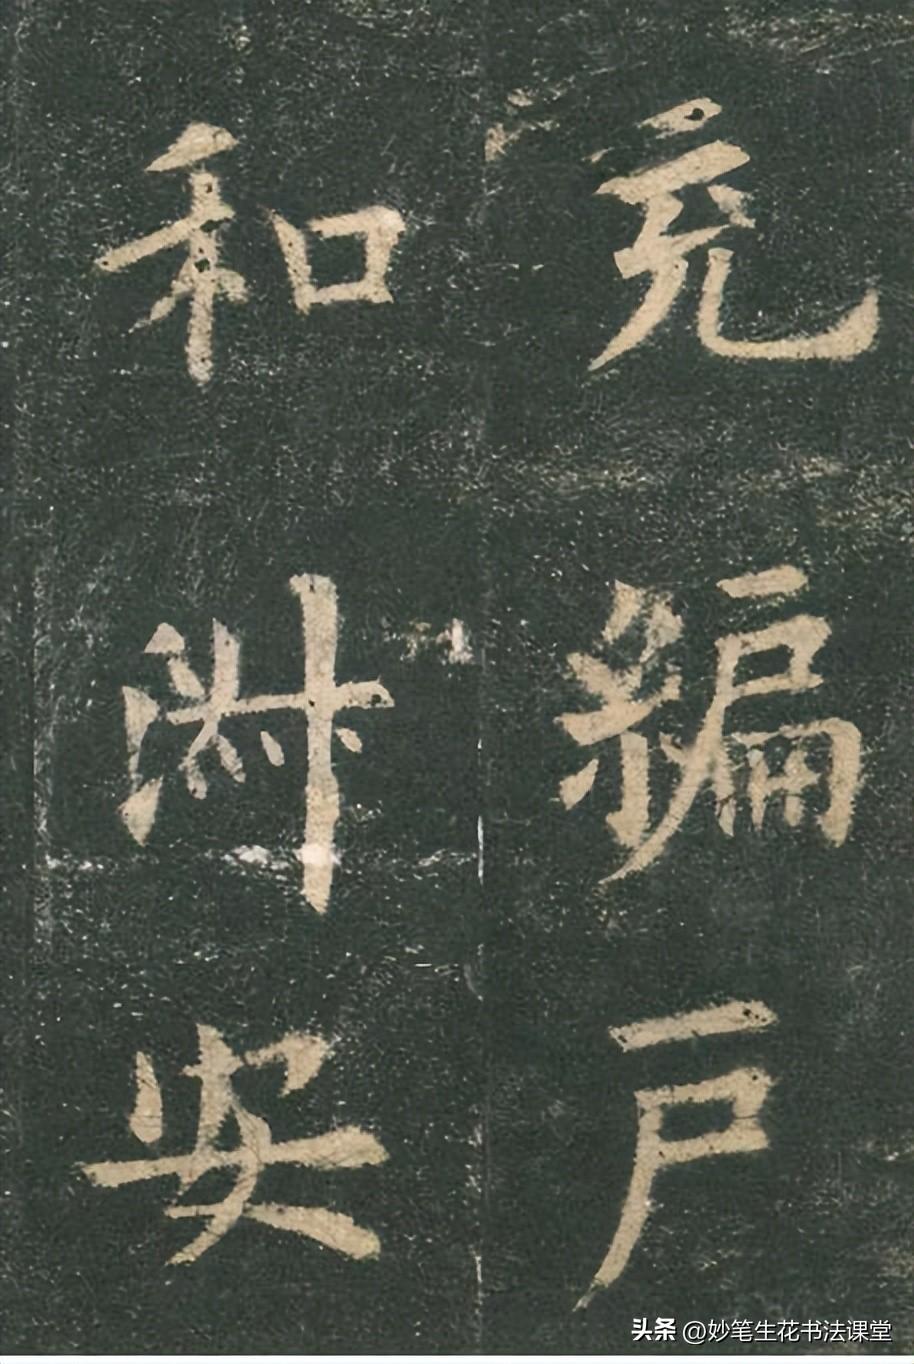 充編戶
和安
头条 @妙笔生花书法课堂